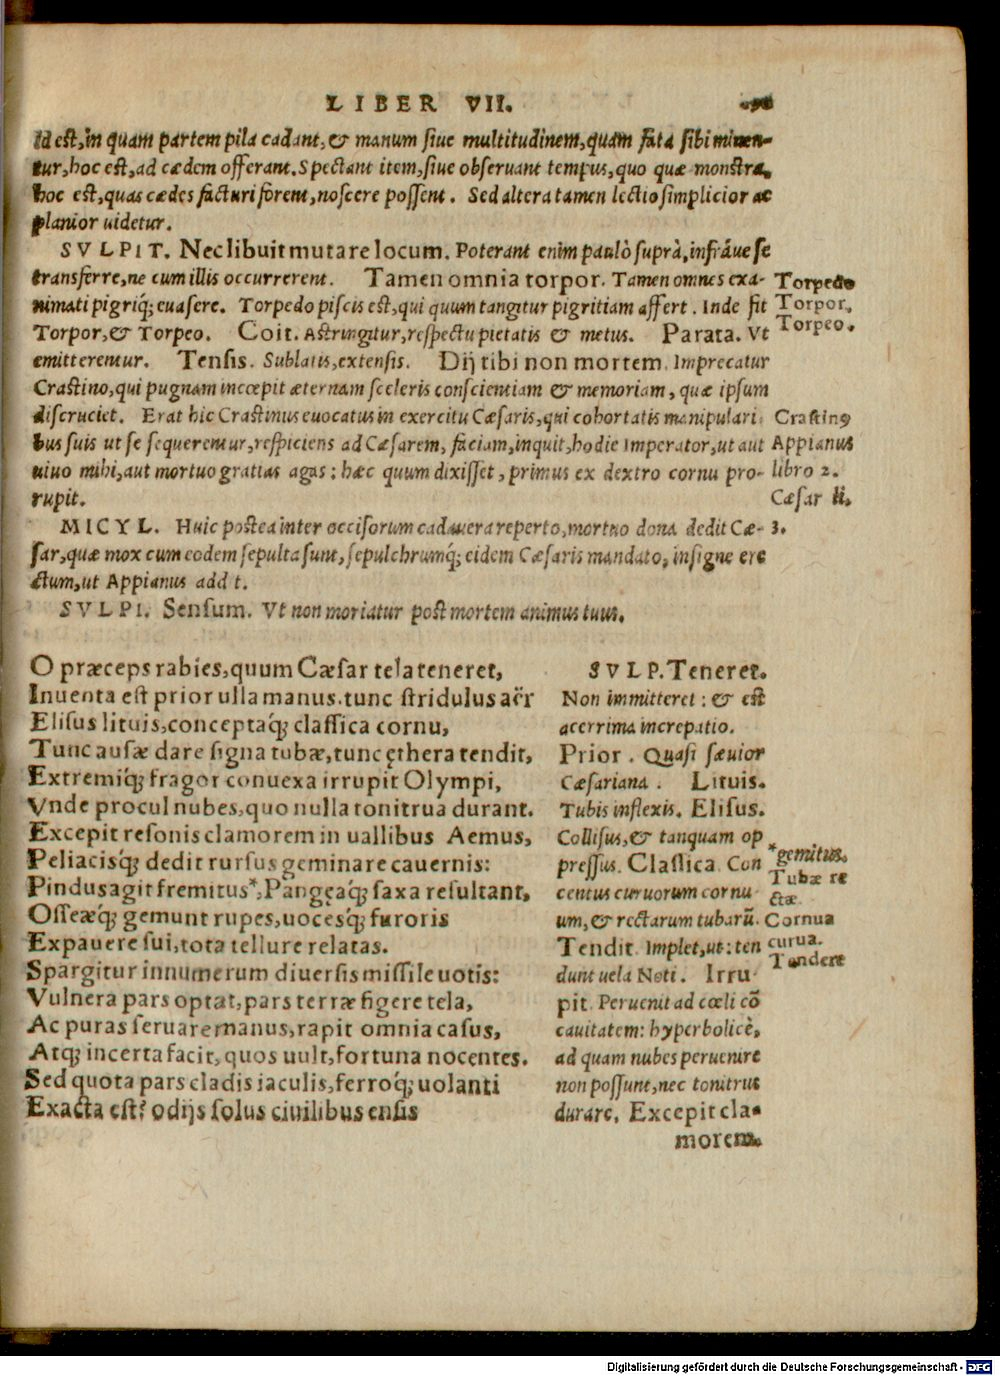 LIBER VII.
Id est, in quam partem pila cadant, & manum siue multitudinem, quam fata sibi minen-
tur, hoc est, ad cædem offerant. Spectant item, siue obseruant tempus, quo quæ monstra,
hoc est, quas cædes facturi forent, noscere possent. Sed altera tamen lectio simplicior ac
planior uidetur.
SVLPIT. Nec libuit mutare locum. Poterant enim paulò suprà, infráue se
transferre, ne cum illis occurrerent. Tamen omnia torpor. Tamen omnes exa-
nimati pigriq; euasere. Torpedo piscis est, qui quum tangitur pigritiam affert. Inde fit
Torpor, & Torpeo. Coit. Astringitur, respectu pietatis & metus. Parata. Vt
emitterentur. Tensis. Sublatis, extensis. Dij tibi non mortem. Imprecatur
Crastino, qui pugnam incœpit æternam sceleris conscientiam & memoriam, quæ ipsum
discruciet. Erat hic Crastinus euocatus in exercitu Cæsaris, qui cohortatis manipulari
bus suis ut se sequerentur, respiciens ad Cæsarem, faciam, inquit, hodie Imperator, ut aut
uiuo mihi, aut mortuo gratias agas: hæc quum dixisset, primus ex dextro cornu pro-
rupit.
Torpedo
Torpor.
Torpeo.
Crastinꝰ
Appianus
libro 2.
Cæsar li.
3.
MICYL. Huic postea inter occisorum cadauera reperto, mortuo dona dedit Cæ-
sar, quæ mox cum eodem sepulta sunt, sepulchrumq́; eidem Cæsaris mandato, insigne ere
ctum, ut Appianus add t.
SVLPI. Sensum. Vt non moriatur post mortem animus tuus.
O præceps rabies, quum Cæsar tela teneret,
Inuenta est prior ulla manus. tunc stridulus aër
Elisus lituis, conceptaq́; classica cornu,
Tunc ausæ dare signa tubæ, tunc ęthera tendit,
Extremiq́; fragor conuexa irrupit Olympi,
Vnde procul nubes, quo nulla tonitrua durant.
Excepit resonis clamorem in uallibus Aemus,
Peliacisq́; dedit rursus geminare cauernis:
Pindus agit fremitus*, Pangęaq́; saxa resultant,
Osseæq́; gemunt rupes, uocesq́; furoris
Expauere sui, tota tellure relatas.
Spargitur innumerum diuersis missile uotis:
Vulnera pars optat, pars terræ figere tela,
Ac puras seruare manus, rapit omnia casus,
Atq; incerta facit, quos uult, fortuna nocentes.
Sed quota pars cladis iaculis, ferroq́; uolanti
Exacta est? odijs solus ciuilibus ensis
SVLP. Teneret.
Non immitteret: & est
acerrima increpatio.
Prior. Quasi sæuior
Cæsariana. Lituis.
Tubis inflexis. Elisus.
Collisus, & tanquam op
pressus. Classica. Con
centus curuorum cornu
um, & rectarum tubarũ.
Tendit. Implet, ut: ten
dunt uela Noti. Irru-
pit. Peruenit ad cœli cō
cauitatem: hyperbolicè,
ad quam nubes peruenire
non possunt, nec tonitrua
durare. Excepit cla-
morem.
*gemitus.
Tubæ re
ctæ
Cornua
curua.
Tendere
Digitalisierung gefördert durch die Deutsche Forschungsgemeinschaft - DFG